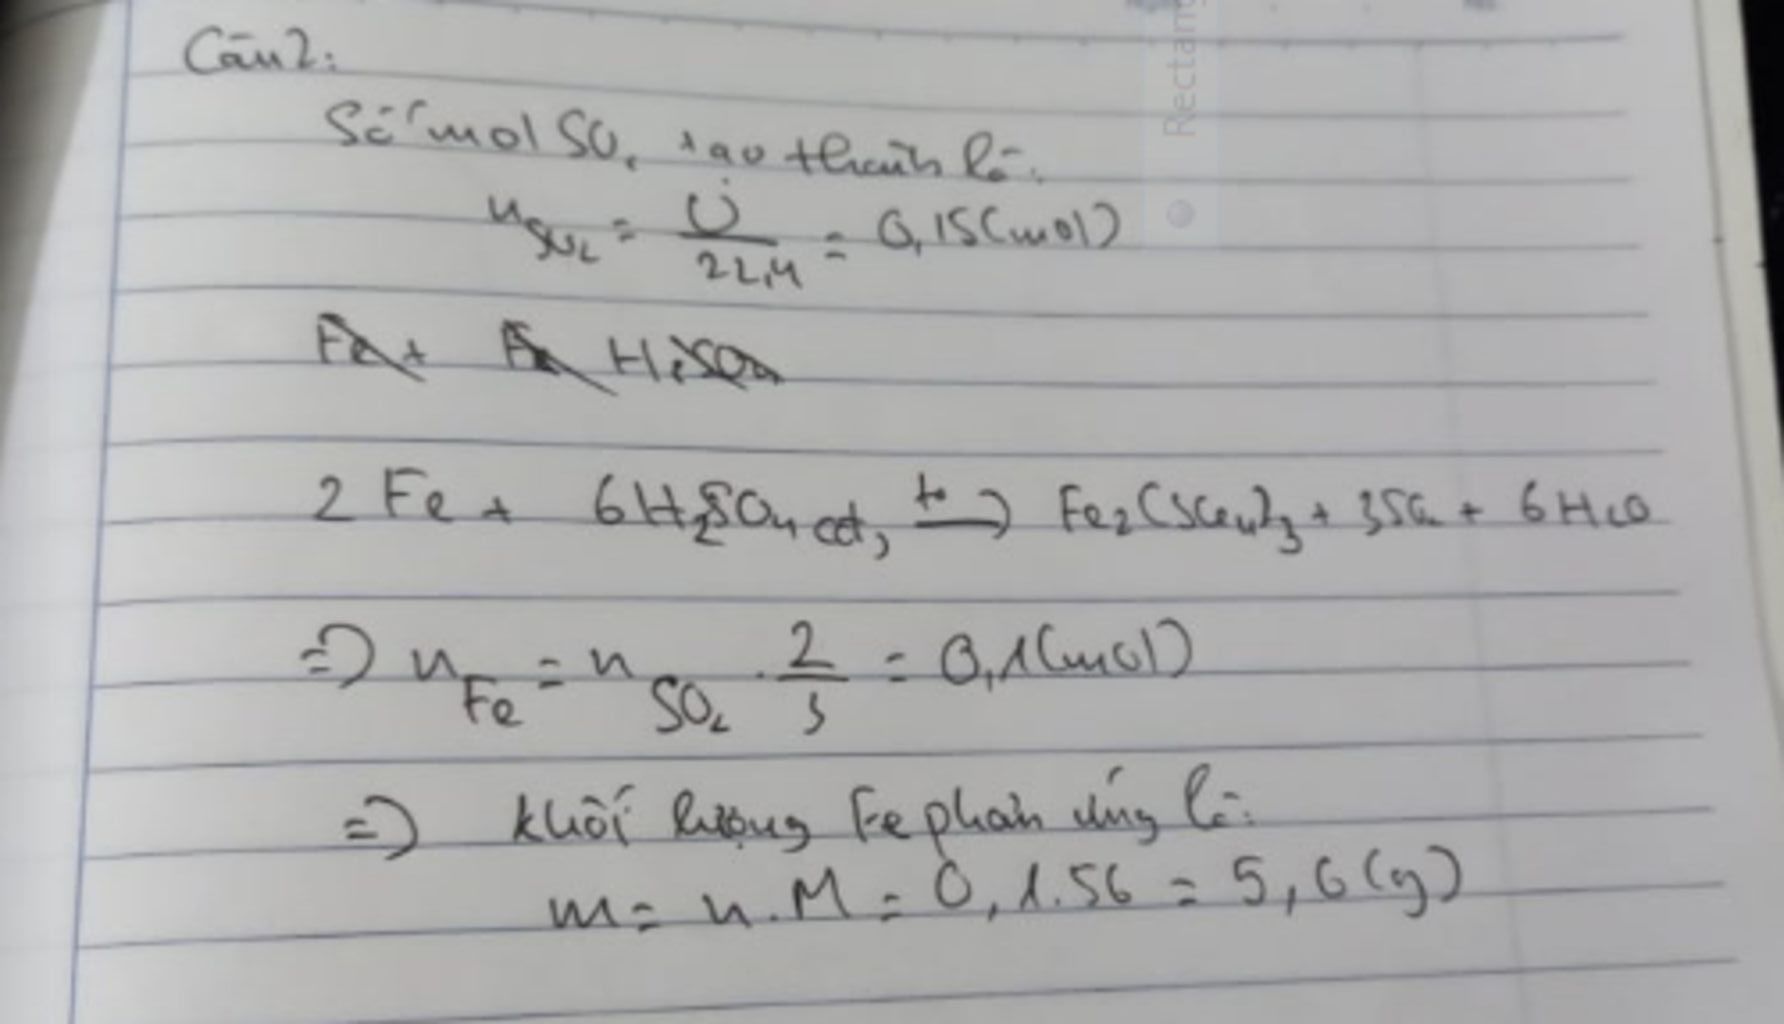 Câu 2:
Số mol SO₂ tạo thành là:
n_SO₂ = V/22,4 = 0,15 (mol)
Fe + Fe H₂SO₄
2 Fe + 6H₂SO₄ đ, t° → Fe₂(SO₄)₃ + 3SO₂ + 6H₂O
=> n_Fe = n_SO₂ . 2/3 = 0,1 (mol)
=> khối lượng Fe phản ứng là:
m = n.M = 0,1.56 = 5,6 (g)
Rectan